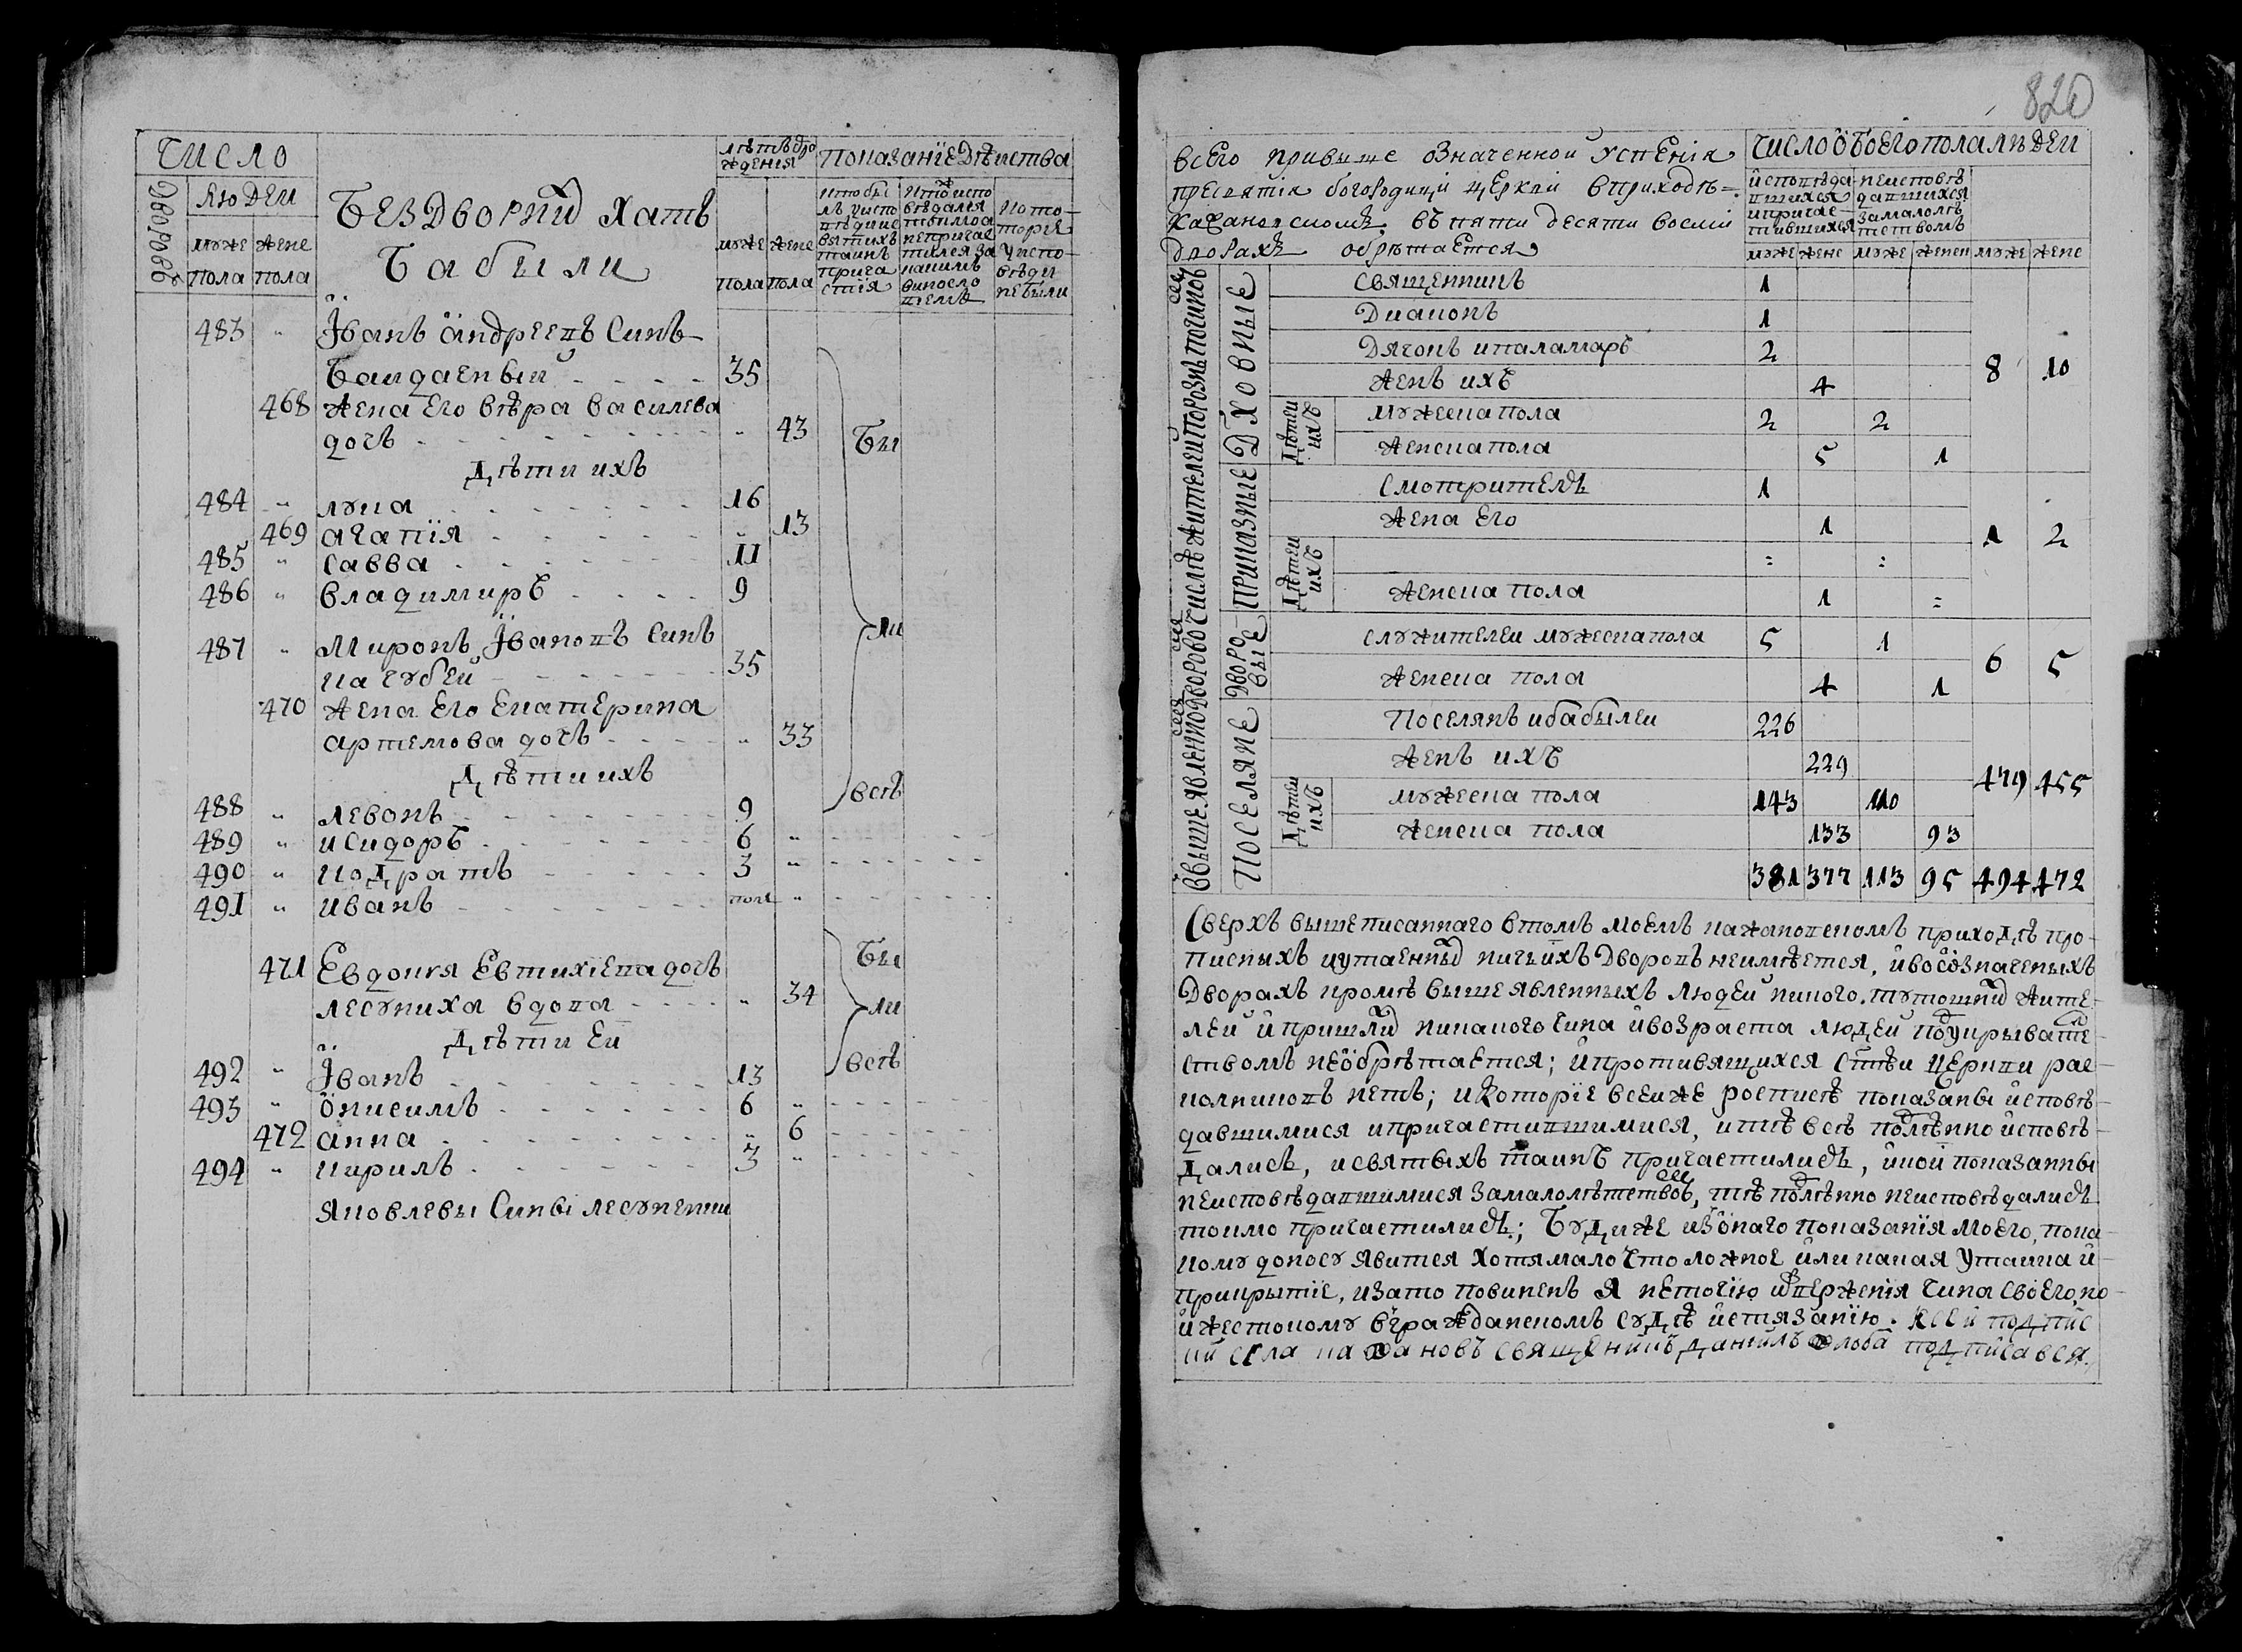 Число
Дворовъ
людеи
муже пола
жене пола
Бездворнихъ хатъ
бабыли
лѣтъ от рождения
муже пола
жене пола
Показание Дѣиства
Кто былъ у исповѣди и святыхъ таинъ причастія
Которіе у исповѣди не были
483 " Іванъ андреевъ синъ
Баидаенвыи 35
468 жена Его вѣра василева
дочь " 43
Бы
Дѣти ихъ
484 " лука 16
469 агапїя " 13
485 " савва 11
486 " владимиръ 9
ли
487 " Миронъ Івановъ синъ
кагубеи 35
470 жена Его Екатерина
артемова дочь " 33
Дѣти ихъ
всѣ
488 " левонъ 9
489 " исидоръ 6 "
490 " кодратъ 3 "
491 " иванъ полъ "
471 Евдокия Евтихїева дочь
лесуниха вдова " 34
Бы
ли
всѣ
Дѣти Еи
492 " Іванъ 13
493 " онисимъ 6 "
472 анна " 6
494 " кирилъ 3 "
Яковлевы Сины лесуненки
820
всего привыше означенной Успенія
пресвятія богородици церкви вприходѣ
качановскомъ въ пяти десяти восми
дворахъ обрѣтается
Число обоего пола людеи
исповѣдавшихся и причастившихся
неисповѣдавшихся за малолѣтствомъ
муже жене муже женен муже жене
Духовние
Священникъ 1
Диаконъ 1
Дячокъ и паламаръ 2
женъ ихъ 4
8 10
Дѣтеи ихъ
мужеска пола 2 2
женска пола 5 1
Приказные
Смотритель 1
жена Его 1
1 2
Дѣтеи ихъ
= =
женска пола 1 =
Дворовые
служителеи мужеска пола 5 1
женска пола 4 1
6 5
Поселяне
Поселянъ и бабылеи 226
женъ ихъ 229
479 455
Дѣтеи ихъ
мужеска пола 143 110
женска пола 133 93
381 377 113 95 494 472
Сверхъ вышеписаннаго втомъ моемъ качановскомъ приходѣ про-
писныхъ и утаеннихъ ничьихъ Дворовъ неимѣется, и во означеныхъ
Дворахъ кромѣ вышеявленныхъ людеи никого тутошнихъ жите-
леи и пришлихъ никакого чина и возраста людеи под укрывате-
ствомъ необрѣтается; и противящихся стѣи церкви рас-
колниковъ нетъ; и которїе в сеи же росписѣ показаны исповѣ-
давшимися и причастившимися, и тѣ всѣ подлѣнно исповѣ-
дались, и святыхъ таинъ причастились, и кои показанны
неисповѣдавшимися за малолѣтствомъ, тѣ подлѣнно неисповѣдались
токмо причастились; Буди же из онаго показанїя моего, по ка-
кому доносу явится хотя мало что ложное или какая утаика и
прикрытїе, и за то повиненъ я не точїю изверженія чина своего, но
и жестокому в гражданскомъ судѣ истязанїю. К сеи подпис
ки села качановъ священикъ данилъ злоба подписався.